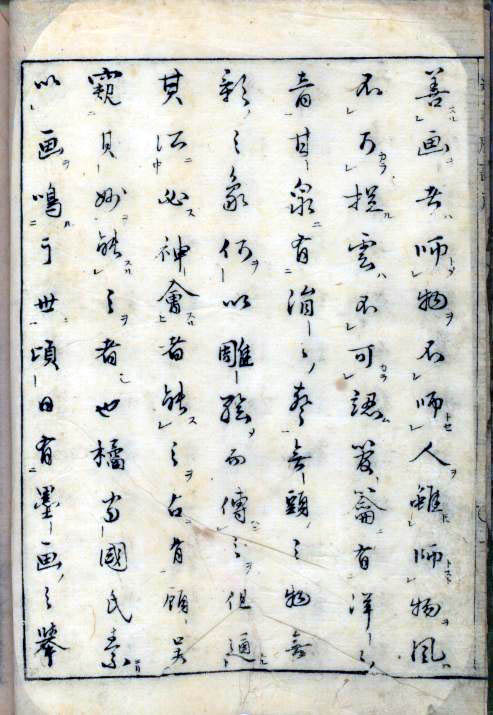 善画者師物不師人雖師物風
不可捉雲不可認管籥有洋〻
音甘泉有涓〻聲無頭之物無
影之象何以雕絵而傳之但通
其所必神會者能之古有顧呉
窺其妙能之者也橘守國氏素
以画鳴于世頃日有墨画之挙